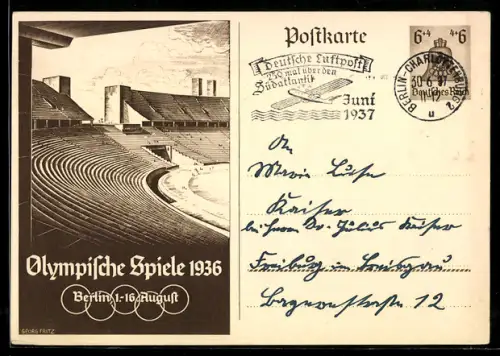 Postkarte
6+4 4+6
Deutsches Reich
Deutsche Luftpost
250 mal über den
Südatlantik
Juni
1937
BERLIN-CHARLOTTENBURG 2
30.6.37
u
An
Maria Luise
Kaiser
bei Herrn Dr. Julius Kaiser
Freiburg im Breisgau
12
Olympische Spiele 1936
Berlin, 1.-16. August
GEORG FRITZ